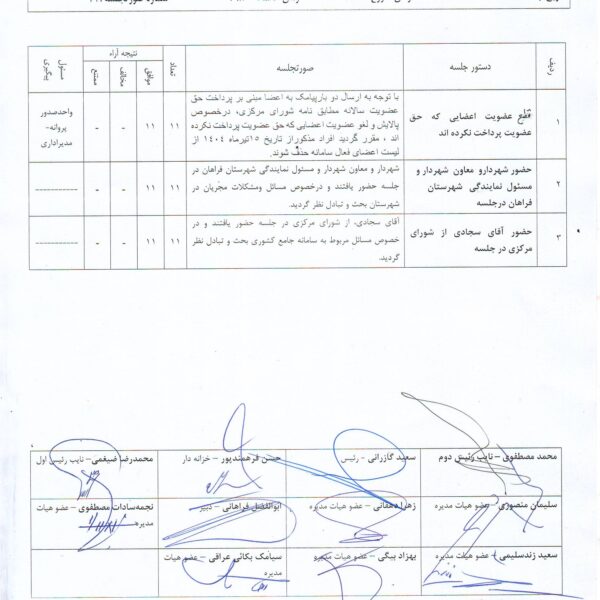 ردیف
دستور جلسه
صورتجلسه
تعداد
نتیجه آراء
موافق
مخالف
ممتنع
مسئول پیگیری
۱
قطع عضویت اعضایی که حق
عضویت پرداخت نکرده اند
با توجه به ارسال دو بارپیامک به اعضا مبنی بر پرداخت حق
عضویت سالانه مطابق نامه شورای مرکزی، درخصوص
پالایش و لغو عضویت اعضایی که حق عضویت پرداخت نکرده
اند ، مقرر گردید افراد مذکوراز تاریخ ۱۵تیرماه ۱۴۰۴ از
لیست اعضای فعال سامانه حذف شوند.
۱۱
۱۱
-
-
واحدصدور
پروانه-
مدیراداری
۲
حضور شهردارو معاون شهردار و
مسئول نمایندگی شهرستان
فراهان درجلسه
شهردار و معاون شهردار و مسئول نمایندگی شهرستان فراهان در
جلسه حضور یافتند و درخصوص مسائل ومشکلات مجریان در
شهرستان بحث و تبادل نظر گردید.
۱۱
۱۱
-
-
-----------
۳
حضور آقای سجادی از شورای
مرکزی در جلسه
آقای سجادی، از شورای مرکزی در جلسه حضور یافتند و در
خصوص مسائل مربوط به سامانه جامع کشوری بحث و تبادل نظر
گردید.
۱۱
۱۱
-
-
-----------
محمد مصطفوی – نایب رئیس دوم
سعید گازرانی - رئیس
حسن فرهمندپور – خزانه دار
محمدرضا ضیغمی – نایب رئیس اول
سلیمان منصوری – عضو هیات مدیره
زهرا دهقانی – عضو هیات مدیره
ابوالفضل فراهانی – دبیر
نجمه‌سادات مصطفوی – عضو هیات
مدیره
سعید زندسلیمی – عضو هیات مدیره
بهزاد بیگی – عضو هیات مدیره
سیامک بکائی عراقی – عضو هیات
مدیره